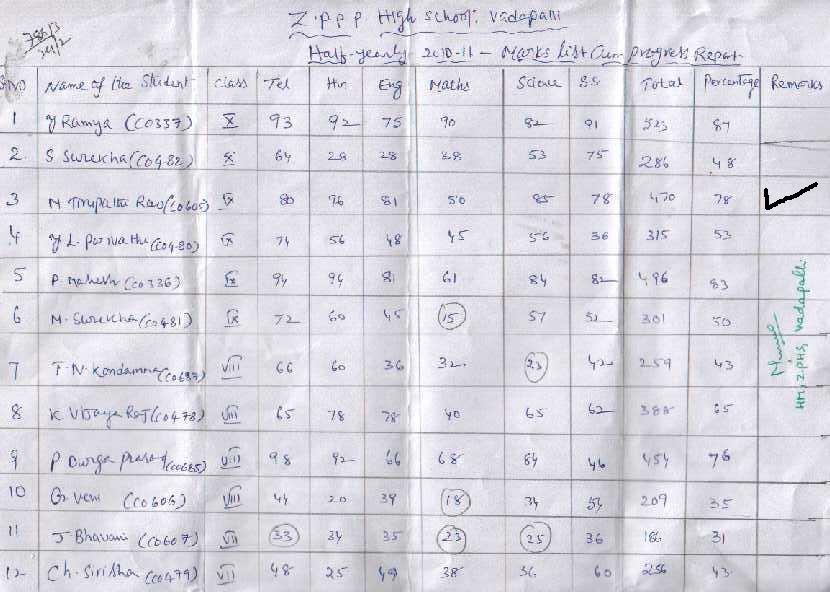 Z.P.P.P High School, Vadapalli
Half-yearly 2010-11 - Marks List Cum progress Report
S.NO Name of the Student Class Tel Hin Eng Maths Science S.S Total Percentage Remarks
1 Y Ramya (C0337) X 93 92 75 90 82 91 523 87
2 S Surekha (C0482) X 64 28 28 38 53 75 286 48
3 N Tirupathi Rao (C0605) IX 80 76 81 50 85 78 450 78
4 Y L. Parvathi (C0480) IX 74 56 48 45 56 36 315 53
5 P. Mahesh (C0336) IX 94 94 81 61 84 82 496 83
6 M. Surekha (C0481) IX 72 60 45 15 57 52 301 50
7 T. N. Kondamma (C0637) VIII 66 60 36 32 23 42 259 43
8 K Vijaya Raj (C0478) VIII 65 78 78 40 65 62 388 65
9 P Durga prasad (C0685) VIII 98 92 66 68 84 46 454 76
10 G. Veni (C0606) VIII 44 20 39 18 34 54 209 35
11 J Bhavani (C0607) VII 33 34 35 23 25 36 186 31
12 Ch. Sirisha (C0479) VII 48 25 49 38 36 60 256 43
HM, Z.PHS, Vadapalli